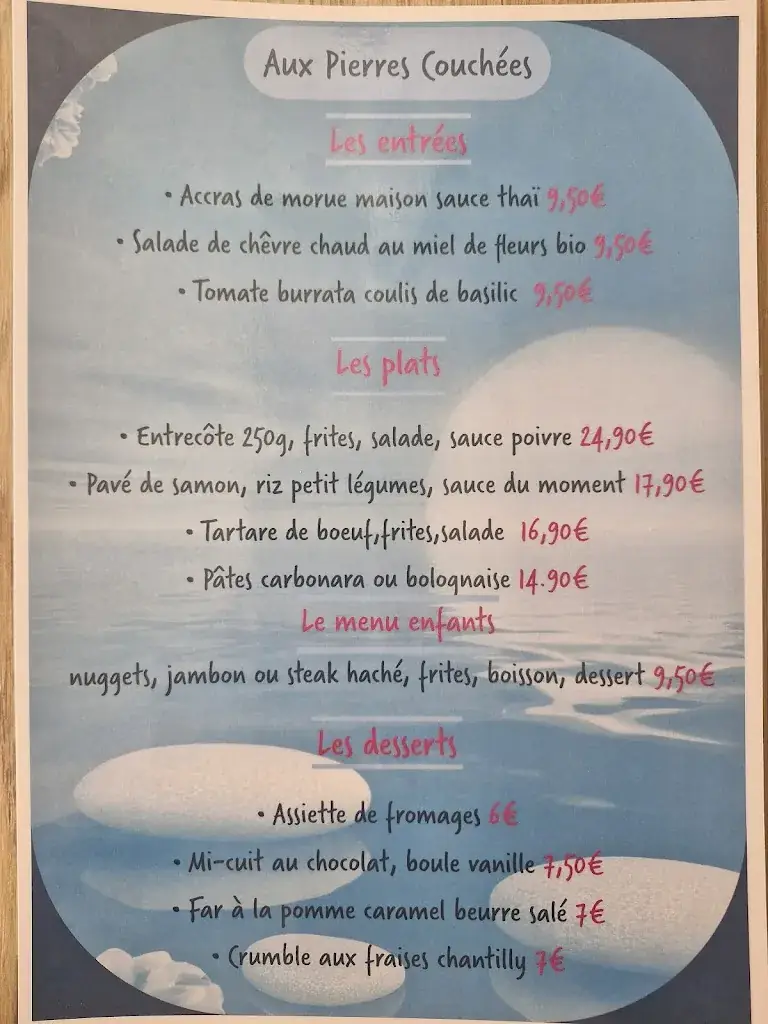 Aux Pierres Couchées
Les entrées
• Accras de morue maison sauce thaï 9,50€
• Salade de chêvre chaud au miel de fleurs bio 9,50€
• Tomate burrata coulis de basilic 9,50€
Les plats
• Entrecôte 250g, frites, salade, sauce poivre 24,90€
• Pavé de samon, riz petit légumes, sauce du moment 17,90€
• Tartare de boeuf,frites,salade 16,90€
• Pâtes carbonara ou bolognaise 14.90€
Le menu enfants
nuggets, jambon ou steak haché, frites, boisson, dessert 9,50€
Les desserts
• Assiette de fromages 6€
• Mi-cuit au chocolat, boule vanille 7,50€
• Far à la pomme caramel beurre salé 7€
• Crumble aux fraises chantilly 7€